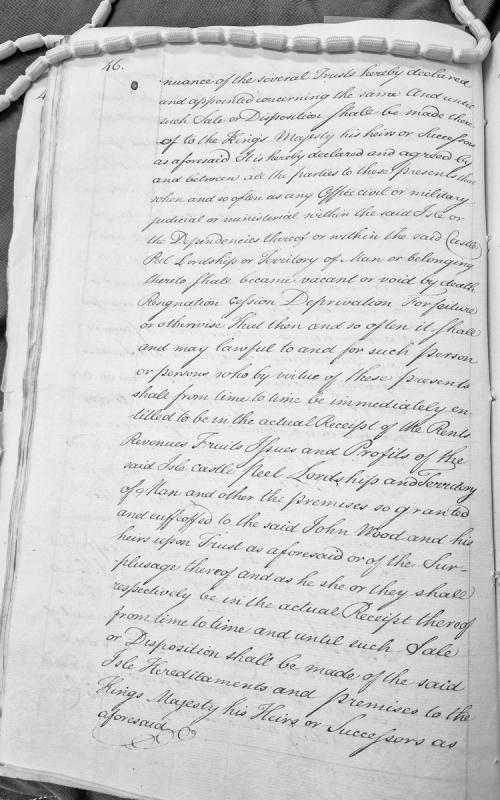 46.
nuance of the several Trusts hereby declared
and appointed concerning the same And untill
such Sale or Disposition shall be made there
of to the Kings Majesty his heirs or Successors
as aforesaid It is hereby declared and agreed by
and between all the parties to these presents that
when and so often as any Office civil or military
judicial or ministerial within the said Isle or
the Dependencies thereof or within the said Castle
Peel Lordship or Territory of Man or belonging
thereto shall become vacant or void by death
Resignation Cession Deprivation Forfeiture
or otherwise That then and so often it shall
and may lawful to and for such person
or persons who by virtue of these presents
shall from time to time be immediately en
titled to be in the actual Receipt of the Rents
Revenues Fruits Issues and Profits of the
said Isle Castle Peel Lordship and Territory
of Man and other the premises so granted
and enfeoffed to the said John Wood and his
heirs upon Trust as aforesaid or of the Sur-
plusage thereof and as he she or they shall
respectively be in the actual Receipt thereof
from time to time and until such Sale
or Disposition shall be made of the said
Isle Hereditaments and premises to the
Kings Majesty his Heirs or Successors as
aforesaid